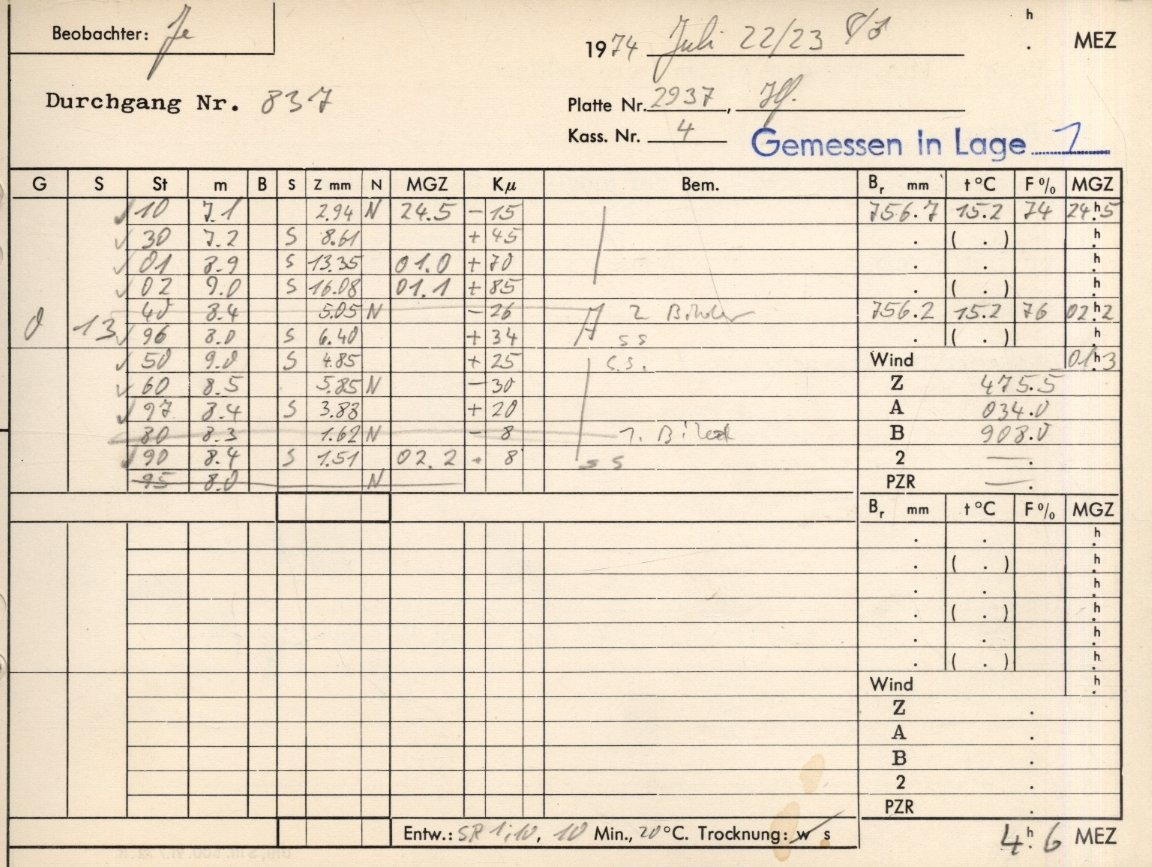 Beobachter: Je
1974 Juli 22/23 h . MEZ
Durchgang Nr. 837
Platte Nr. 2937,
Kass. Nr. 4
Gemessen in Lage 1
G S St m B S Z mm N MGZ Kμ Bem. Br mm t °C F % MGZ
10 7.1 2.94 N 24.5 - 15 756.7 15.2 74 24.h5
30 7.2 S 8.61 + 45 . ( . ) h.
01 8.9 S 13.35 01.0 + 70 . . h.
02 9.0 S 16.08 01.1 + 85 . ( . ) h.
40 8.4 5.05 N - 26 2 Bilder 756.2 15.2 76 02.h2
0 13 96 8.0 S 6.40 + 34 ss . ( . ) h.
50 9.0 S 4.85 + 25 s.s. Wind 01.h3
60 8.5 5.85 N - 30 Z 475.5
97 8.4 S 3.88 + 20 A 034.0
80 8.3 1.62 N - 8 1. Bild B 908.0
90 8.4 S 1.51 02.2 + 8 ss 2 — .
95 8.0 N PZR — .
Br mm t °C F % MGZ
. . h.
. ( . ) h.
. . h.
. ( . ) h.
. . h.
. ( . ) h.
Wind h.
Z .
A .
B .
2 .
PZR .
Entw.: SR 1:10, 10 Min., 20 °C. Trocknung: w s 4h. 6 MEZ